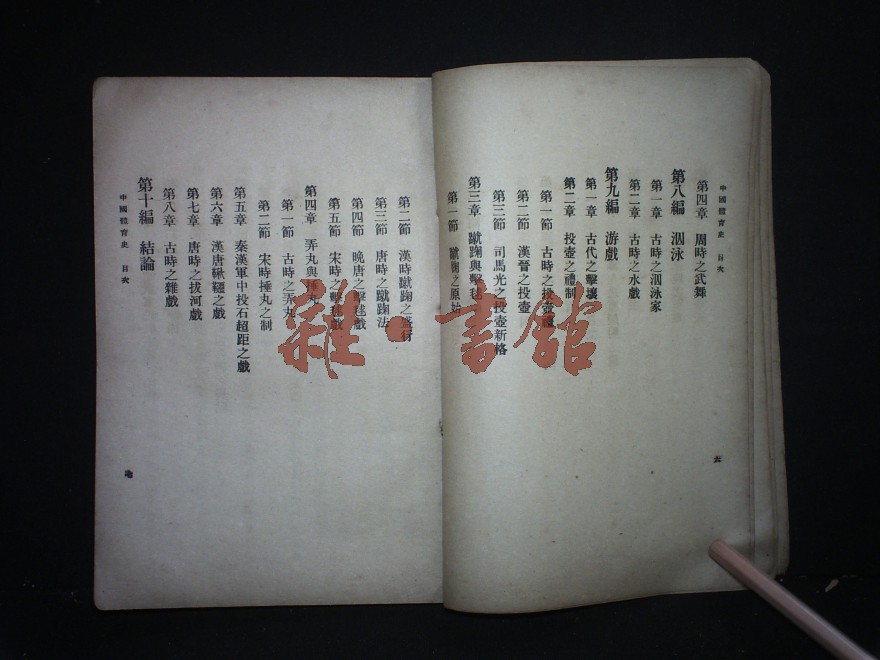 中國體育史 目次
第四章 周時之武舞
第八編 泅泳
第一章 古時之泅泳家
第二章 古時之水戲
第九編 游戲
第一章 古代之擊壤
第二章 投壺之禮制
第一節 古時之投壺禮
第二節 漢晉之投壺
第三節 司馬光之投壺新格
第三章 蹴踘與擊毬
第一節 蹴踘之原始
六
第二節 漢時蹴踘之盛行
第三節 唐時之蹴踘法
第四節 晚唐之擊毬戲
第五節 宋時之擊毬戲
第四章 弄丸與捶丸
第一節 古時之弄丸
第二節 宋時捶丸之制
第五章 秦漢軍中投石超距之戲
第六章 漢唐鞦韆之戲
第七章 唐時之拔河戲
第八章 古時之雜戲
第十編 結論
中國體育史 目次
雜·書館